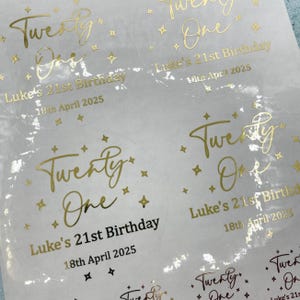 Twenty
One
Luke's 21st Birthday
18th April 2025
Twenty
One
Luke's 21st Birthday
18th April 2025
Twenty
One
Luke's 21st Birthday
18th April 2025
Twenty
One
Luke's 21st Birthday
18th April 2025
Twenty
One
Twenty
One
Twenty